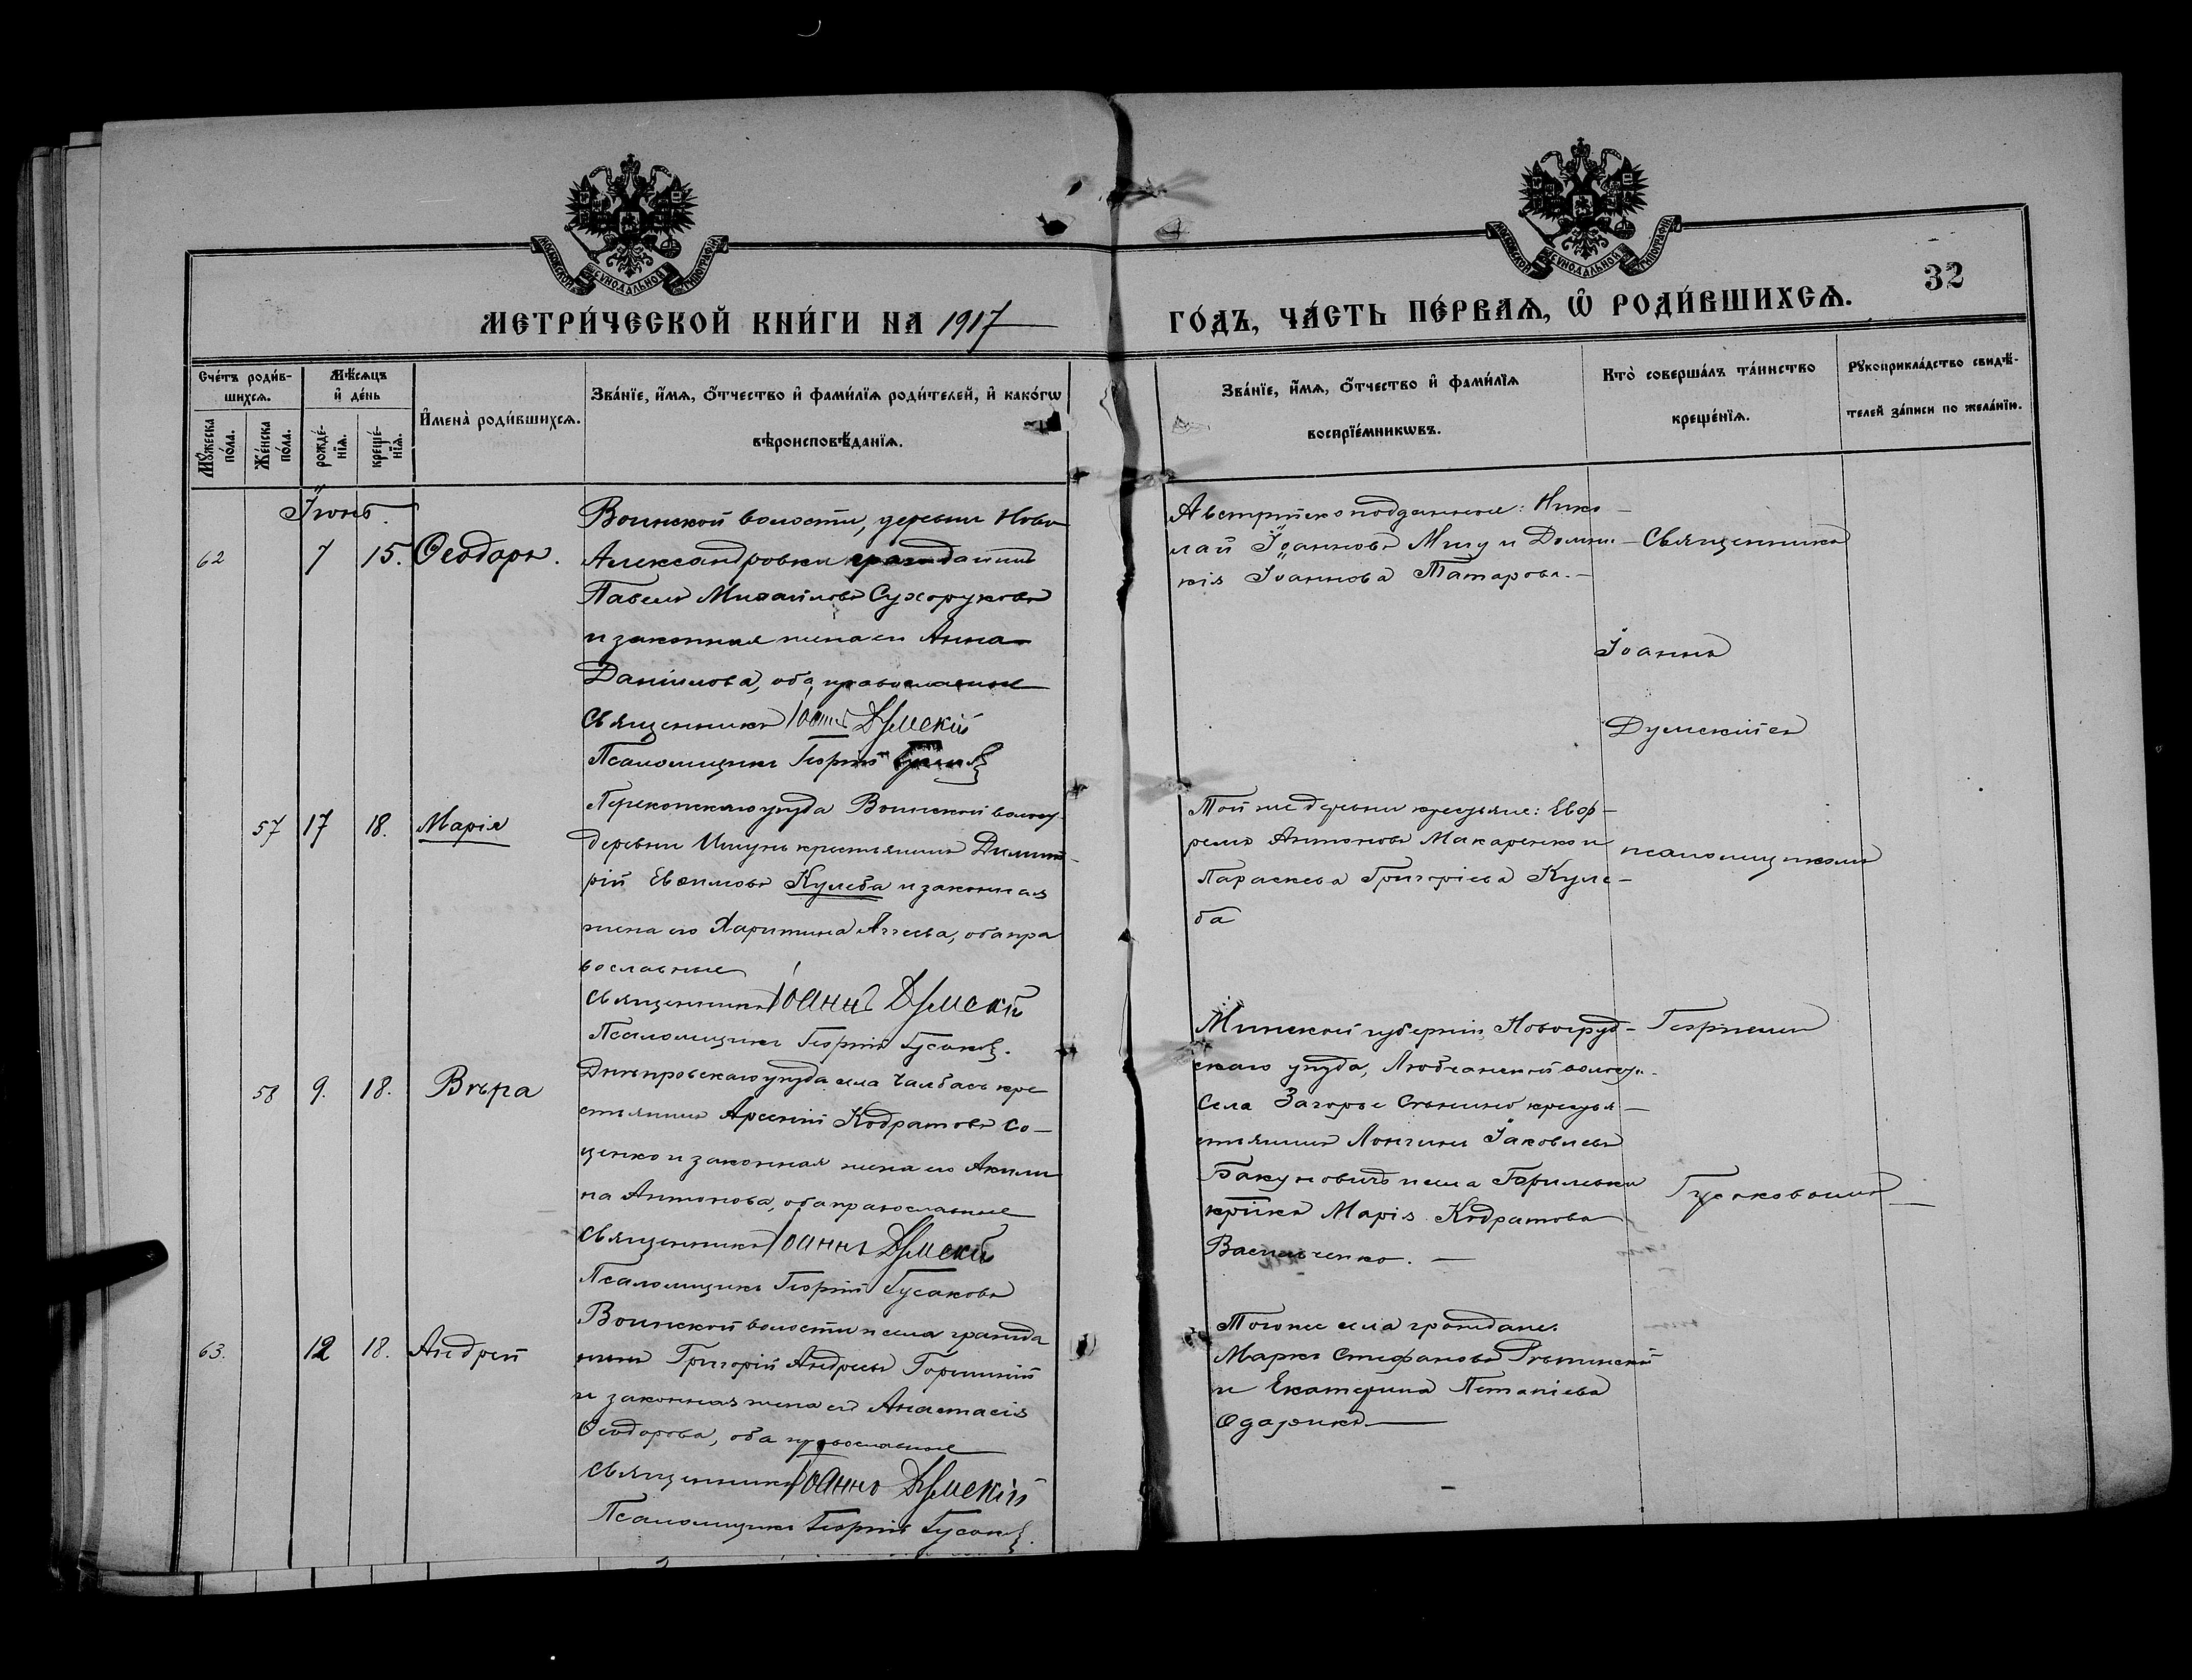 МЕТРИ́ЧЕСКОЙ КНИ́ГИ НА 1917
ГО́ДЪ, ЧА́СТЬ ПЕ́РВАѦ, Ѿ РОДИ́ВШИХСѦ.
32
Счéтъ роди́в-
шихсѧ.
Мꙋ́жеска по́ла.
Же́нска по́ла.
Мѣ́сѧцъ и҆ де́нь
рожде́-нїѧ.
креще́-нїѧ.
И҆мена̀ роди́вшихсѧ.
Зва́нїе, и҆́мѧ, ѻ҆́тчество и҆ фами́лїѧ роди́телей, и҆ како́гѡ
вѣроисповѣ́данїѧ.
Зва́нїе, и҆́мѧ, ѻ҆́тчество и҆ фами́лїѧ
воспрїе́мникѡвъ.
Кто̀ соверша́лъ та́инство
креще́нїѧ.
Рꙋкоприкла́дство свидѣ́-
телей за́писи по жела́нїю.
Іюнь.
62
7
15.
Ѳеодоръ.
Воинской волости, деревни Ново
Александровки гражданинъ
Павелъ Михаиловъ Сухоруковъ
и законная жена его Анна
Даніилова, оба православные
Священникъ Іоаннъ Думскій
Псаломщикъ Георгій Гусаковъ
Австрійскоподданные: Нико-
лай Іоанновъ Мицу и Домни-
кія Іоаннова Татарова.-
Священникъ
Іоаннъ
Думскій съ
псаломщикомъ
Георгіемъ
Гусаковымъ
57
17
18.
Марія
Перекопскаго уѣзда Воинской волос.
деревни Ишунь крестьянинъ Димит-
рій Евѳимовъ Кулеба и законная
жена его Харитина Аггеева, оба пра
вославные
Священникъ Іоаннъ Думскій
Псаломщикъ Георгій Гусаковъ.
Той же деревни крестьяне: Евф-
ремъ Антоновъ Макаренко и
Параскева Григоріева Куле-
ба
58
9.
18.
Вѣра
Днѣпровскаго уѣзда села Чалбасъ кре
стьянинъ Арсеній Кодратовъ Со-
ценко и законная жена его Акили
на Антонова, оба православные
Священникъ Іоаннъ Думскій
Псаломщикъ Георгій Гусаковъ
Минской губерніи, Новогруд-
скаго уѣзда, Любчанской волости.
Села Загорье
Лонгинъ Іаковлевъ
Бакуновичъ и села
Марія Кодратова
Васильченко. -
63.
12
18.
Андрей
Воинской волости и села гражда
нинъ Григорій Андреевъ
и законная жена его Анастасія
Ѳеодорова, оба православные
Священникъ Іоаннъ Думскій
Псаломщикъ Георгій Гусаковъ.
Того же села граждане:
Маркъ Стефановъ Рѣпинскій
и Екатерина Потапіева